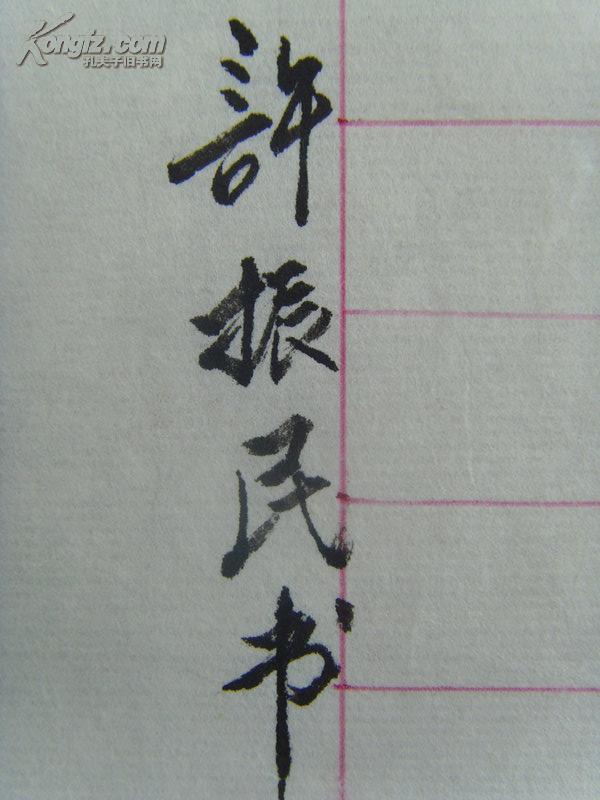 Kongfz.com
孔夫子旧书网
許振民书